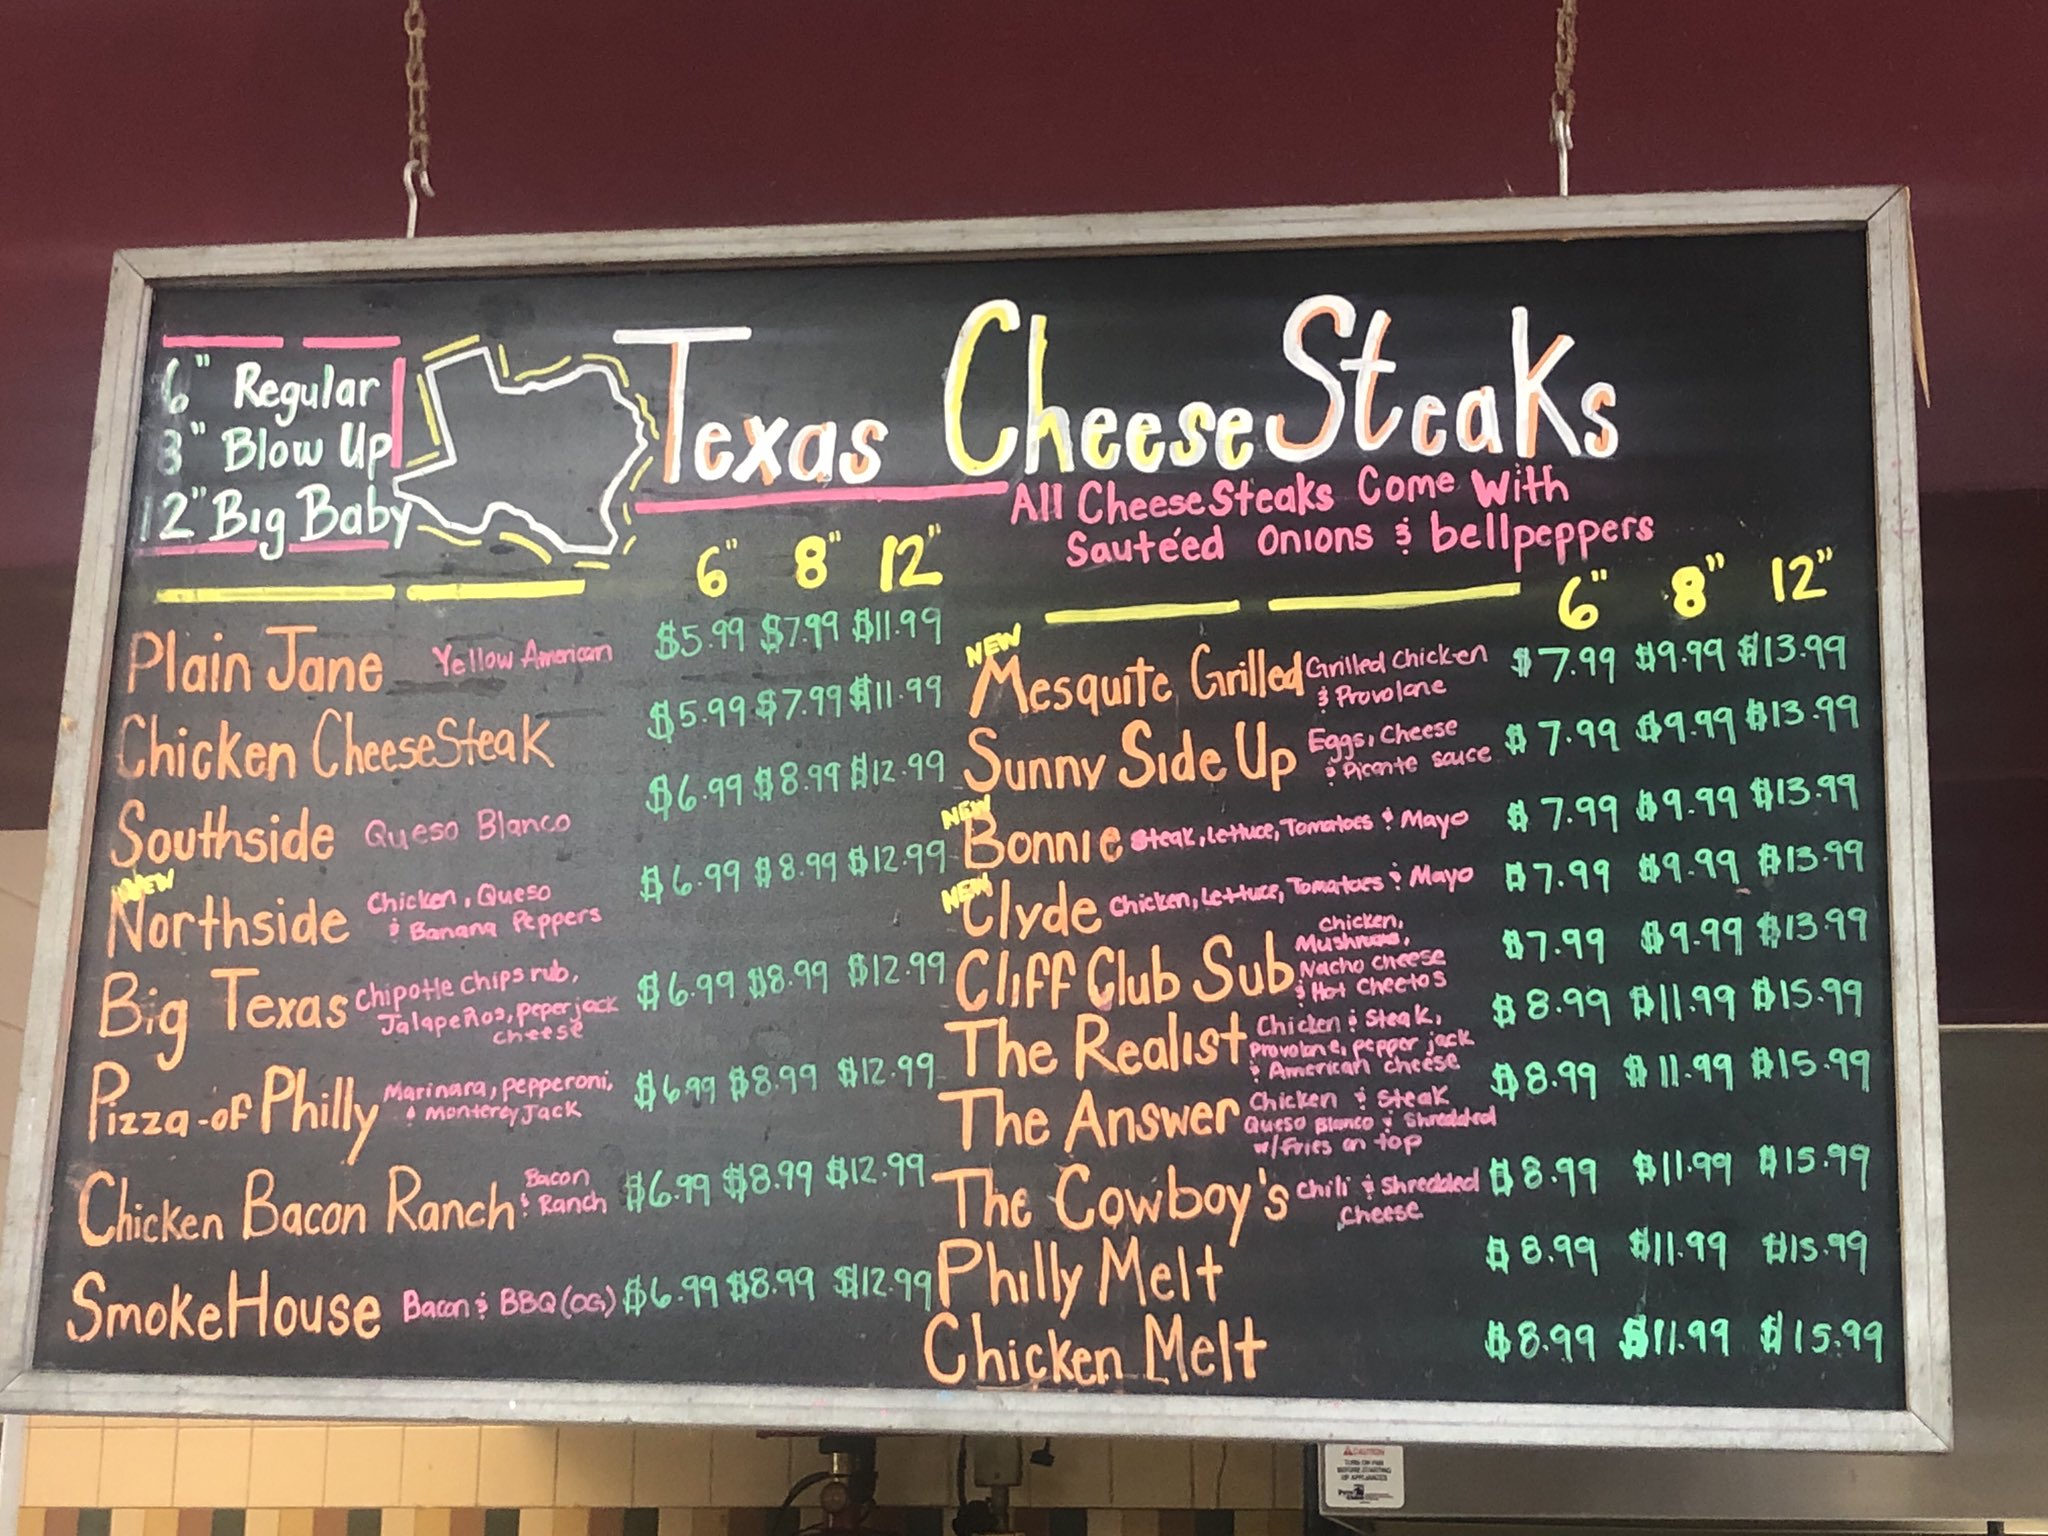 6" Regular
8" Blow Up
12" Big Baby
Texas CheeseSteaks
All CheeseSteaks Come With
Sauteéd Onions & bellpeppers
6" 8" 12"
Plain Jane Yellow American $5.99 $7.99 $11.99
Chicken CheeseSteak $5.99 $7.99 $11.99
Southside Queso Blanco $6.99 $8.99 $12.99
NEW
Northside Chicken, Queso
& Banana Peppers $6.99 $8.99 $12.99
Big Texas Chipotle Chips rub,
Jalapeños, peperjack
cheese $6.99 $8.99 $12.99
Pizza-of Philly Marinara, pepperoni,
& Monterey Jack $6.99 $8.99 $12.99
Chicken Bacon Ranch Bacon
& Ranch $6.99 $8.99 $12.99
SmokeHouse Bacon & BBQ (OG) $6.99 $8.99 $12.99
6" 8" 12"
NEW
Mesquite Grilled Grilled Chicken
& Provolone $7.99 $9.99 $13.99
Sunny Side Up Eggs, Cheese
& Picante sauce $7.99 $9.99 $13.99
NEW
Bonnie Steak, Lettuce, Tomatoes & Mayo $7.99 $9.99 $13.99
NEW
Clyde Chicken, Lettuce, Tomatoes & Mayo $7.99 $9.99 $13.99
Cliff Club Sub Chicken,
Mushrooms,
Nacho cheese
& Hot Cheetos $7.99 $9.99 $13.99
The Realist Chicken & Steak,
Provolone, pepper jack
& American cheese $8.99 $11.99 $15.99
The Answer Chicken & Steak
Queso Blanco & Shredded
w/Fries on top $8.99 $11.99 $15.99
The Cowboy's Chili & Shredded
Cheese $8.99 $11.99 $15.99
Philly Melt $8.99 $11.99 $15.99
Chicken Melt $8.99 $11.99 $15.99
CAUTION
TURN ON FAN
BEFORE STARTING
UP APPLIANCES